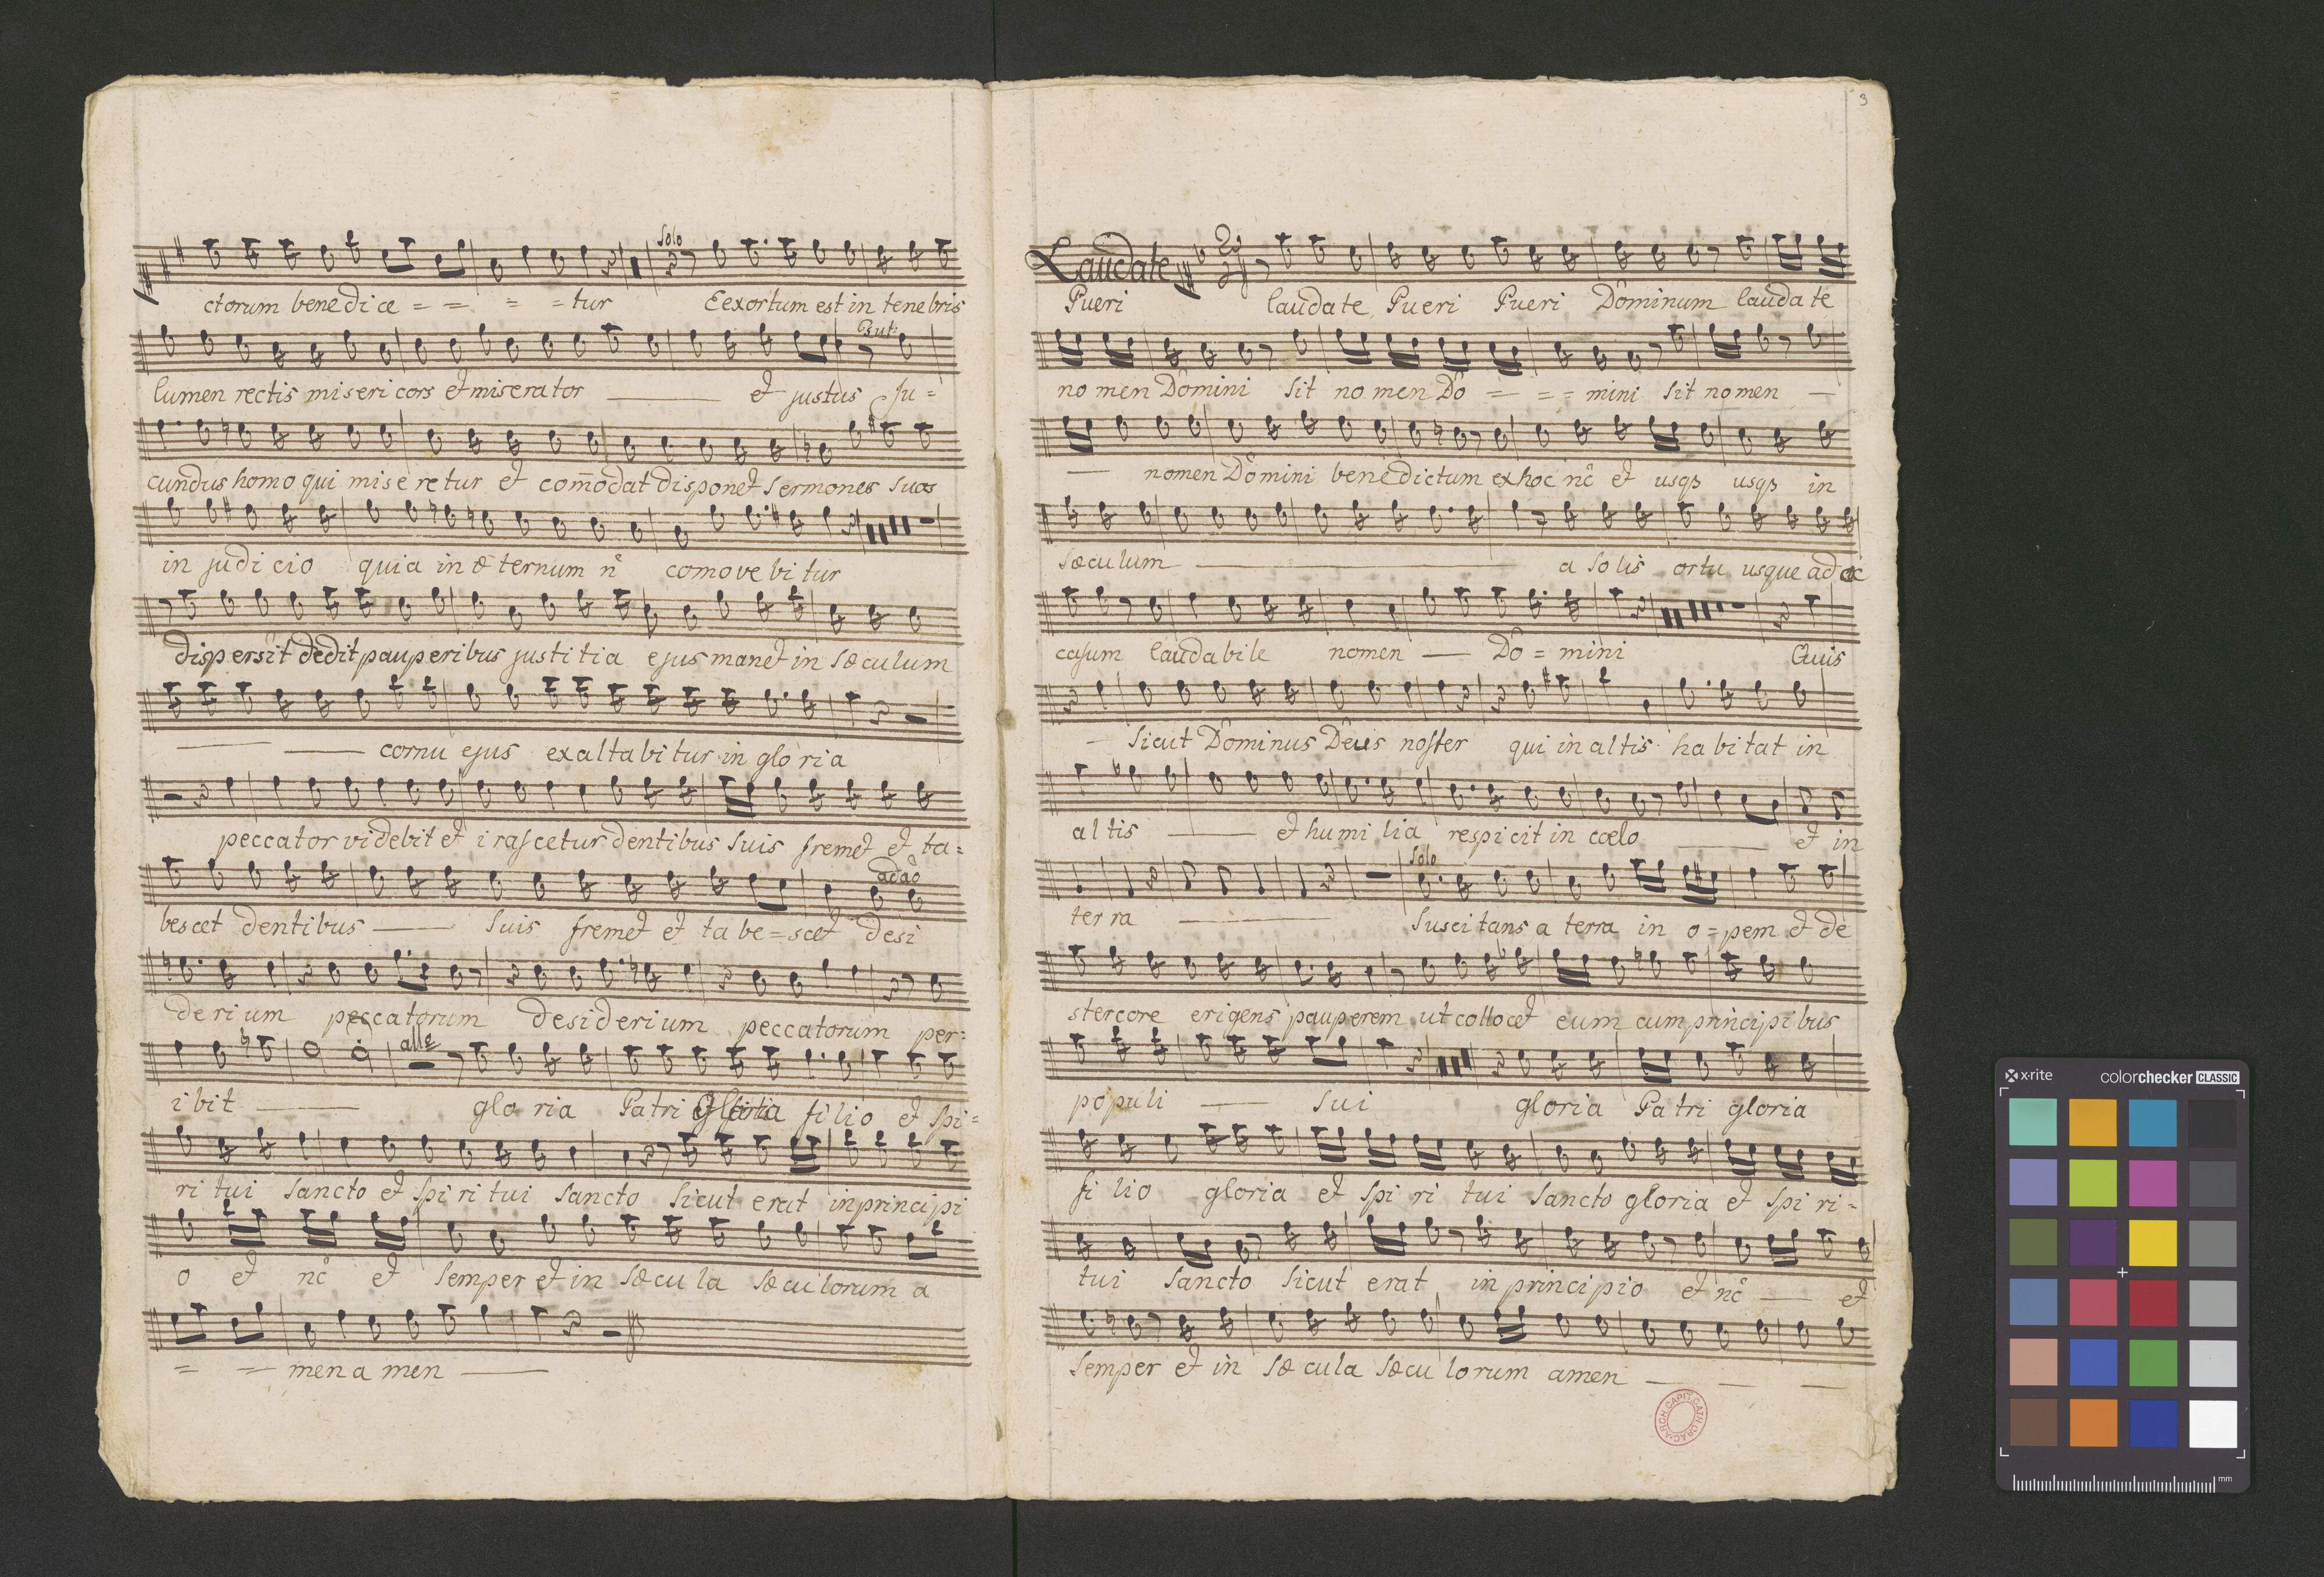 Solo
ctorum benedice = = = = tur Eexortum est in tenebris
Tut:
lumen rectis misericors et miserator et justus Ju =
cundus homo qui miseretur et com̄odat disponet Sermones Suos
in judicio quia in æternum n̊ comovebitur
dispersit dedit pauperibus justitia ejus manet in Sæculum
cornu ejus exaltabitur in gloria
peccator videbit et irascetur dentibus Suis fremet et ta =
adaõ
bescet dentibus Suis fremet et tabe = scet desi
derium peccatorum desiderium peccatorum per =
allº
ibit gloria Patri filio et Spi =
ritui Sancto et Spiritui Sancto Sicut erat in principi
o et nc̊ et Semper et in Sæcula Sæculorum a
= = men a men
3
Laudate
Pueri laudate Pueri Pueri Dôminum laudate
nomen Dômini Sit nomen Dô = = = mini Sit nomen
nomen Dômini benedictum ex hoc nc̊ et usqȝ usqȝ in
Sæculum a Solis ortu usque ad oc
casum laudabile nomen Dô = mini Quis
Sicut Dôminus Deus noster qui in altis habitat in
altis et humilia respicit in cœlo et in
Solo
terra Suscitans a terra in o = pem et de
stercore erigens pauperem ut collocet eum cum principibus
populi Sui gloria Patri gloria
filio gloria et Spiritui Sancto gloria et Spiri =
tui Sancto Sicut erat in principio et nc̊ et
Semper et in Sæcula Sæculorum amen
ARCH. CAPIT. CATH. CRAC.
x-rite colorchecker CLASSIC
mm